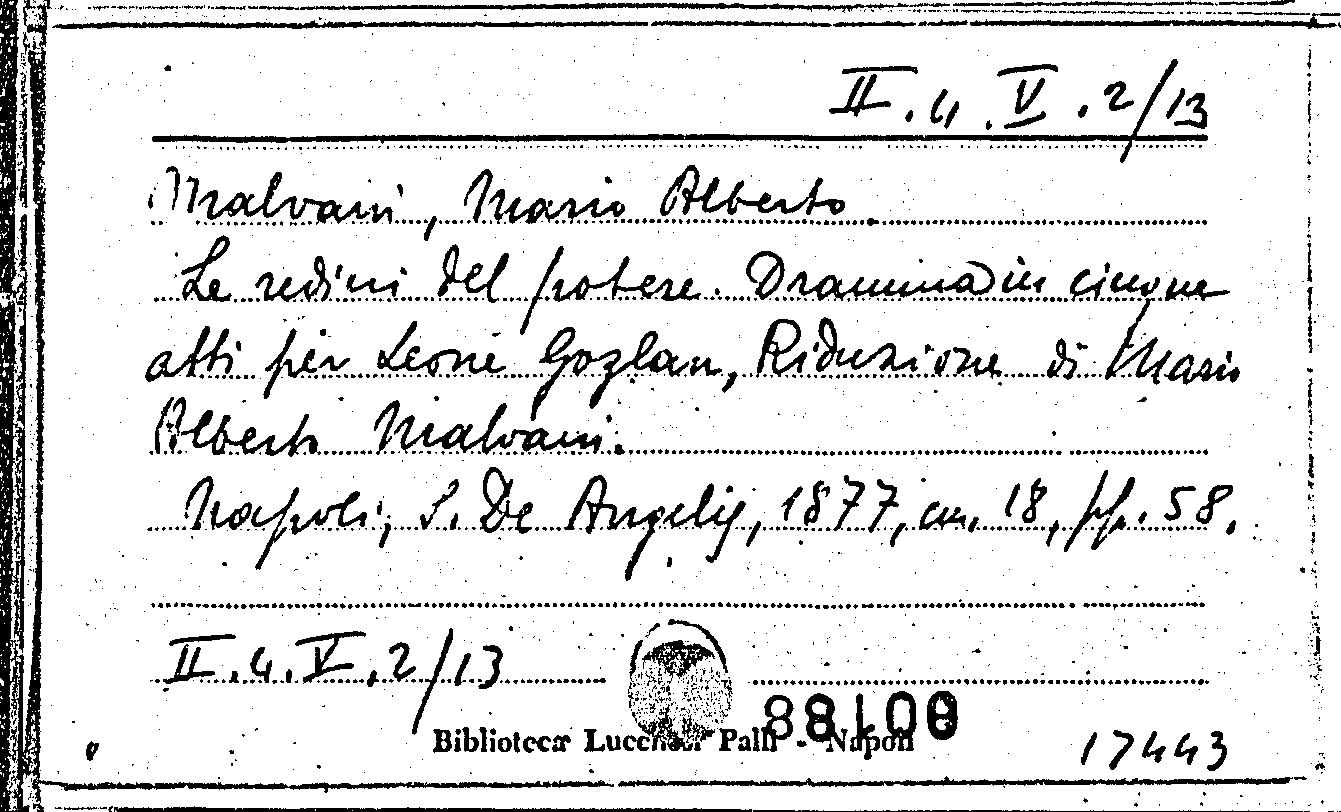 II.4.V.2/13
Malvani, Mario Alberto.
Le redini del potere. Dramma in cinque
atti per Leone Gozlan, Riduzione di Mario
Alberto Malvani.
Napoli, S. De Angelis, 1877, cm. 18, pp. 58.
II.4.V.2/13
88100
Biblioteca Lucchesi Palli - Napoli
17443